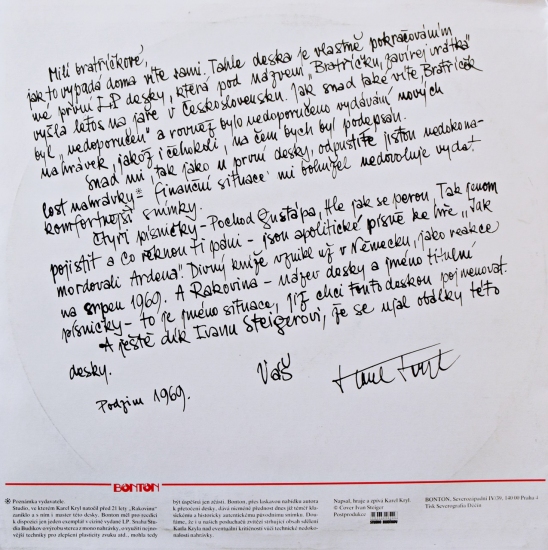 Milí bratříčkové,
jak to vypadá doma víte sami. Tahle deska je vlastně pokračováním
mé první LP desky, která pod názvem „Bratříčku, zavírej vrátka“
vyšla letos na jaře v Československu. Jak snad také víte Bratříček
byl „nedoporučen“ a rovněž bylo nedoporučeno vydávání nových
nahrávek, jakož i čehokoli, na čem bych byl podepsán.
Snad mi, tak jako u první desky, odpustíte jistou nedokona-
lost nahrávky* finanční situace mi bohužel nedovoluje vydat
komfortnější snímky.
Čtyři písničky - Pochod Gustapa, Hle jak se perou, Tak jenom
pojistit a Co řeknou ti páni - jsou apolitické písně ke hře „Jak
mordovali Ardena“ Divný kníže vznikl už v Německu, jako reakce
na srpen 1969. A Rakovina - název desky a jméno titulní
písničky - to je jméno situace, jíž chci touto deskou pojmenovat.
A ještě dík Ivanu Steigerovi, že se ujal obálky této
desky.
Váš
Karel Kryl
Podzim 1969.
BONTON
* Poznámka vydavatele:
Studio, ve kterém Karel Kryl natočil před 21 lety „Rakovinu“
zaniklo a s ním i master této desky. Bonton měl pro reedici
k dispozici jen jeden exemplář v cizině vydané LP. Snaha Stu-
dia Budíkov o výrobu stereo z mono nahrávky, o využití nejno-
vější techniky pro zlepšení plasticity zvuku atd., mohla tedy
být úspěšná jen zčásti. Bonton, přes Lokavou nabídku autora
k přetočení desky, dává nicméně přednost dnes již téměř kla-
sickému a historicky autentickému původnímu snímku. Dou-
fáme, že i u našich posluchačů zvítězí strhující obsah sdělení
Karla Kryla nad eventuální kritičností vůči technické nedoko-
nalosti nahrávky.
Napsal, hraje a zpívá Karel Kryl
© Cover Ivan Steiger
Postprodukce
BONTON, Severozápadní IV/39, 140 00 Praha 4
Tisk Severografia Děčín